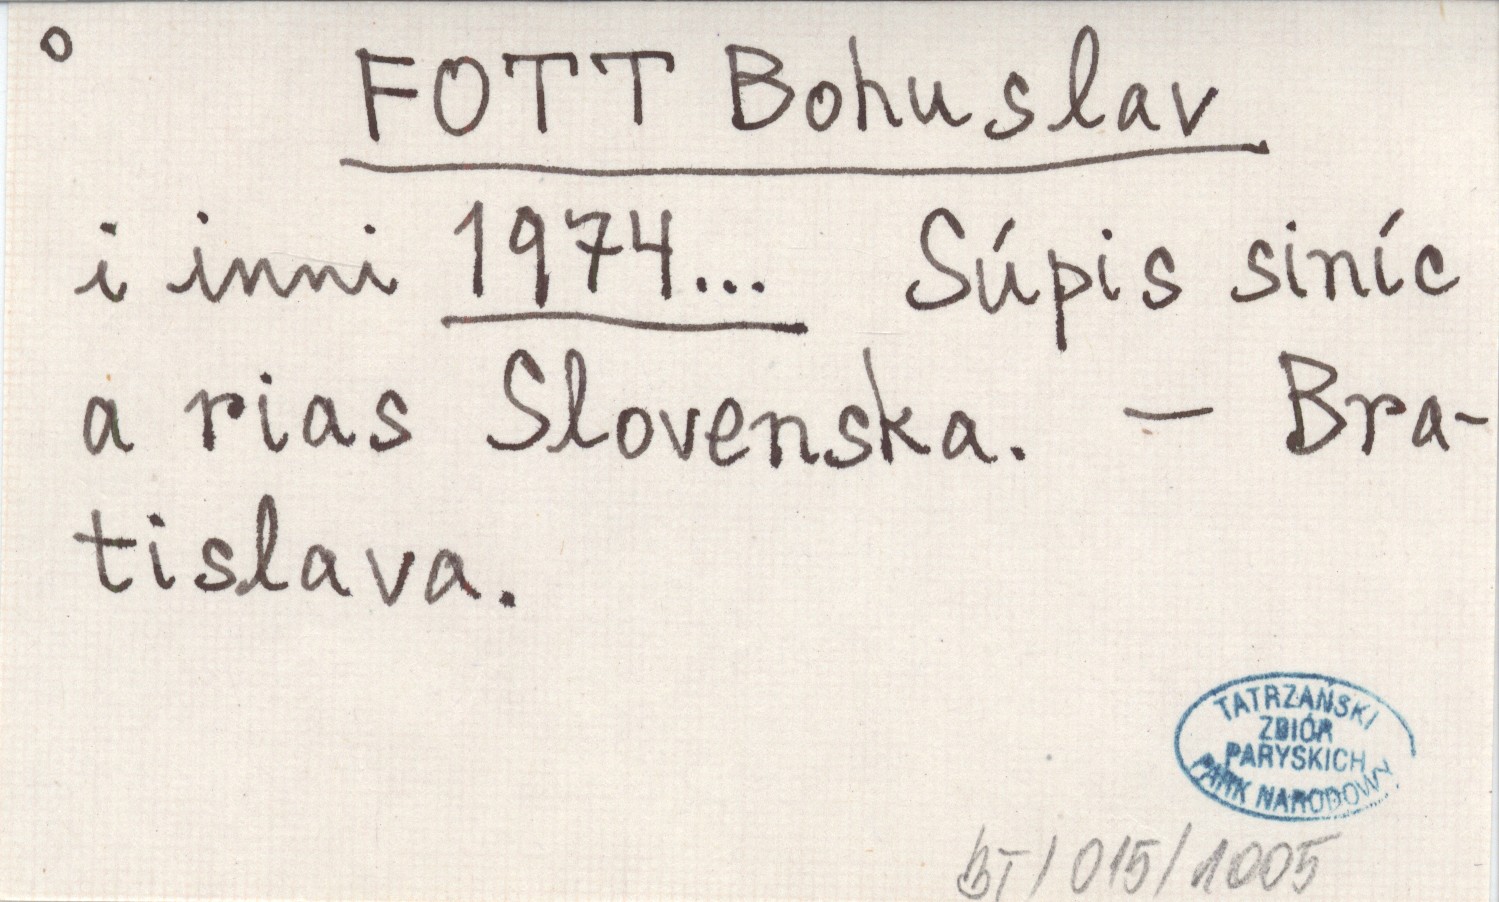 ° FOTT Bohuslav
i inni 1974... Súpis siníc
a rias Slovenska. — Bra-
tislava.
TATRZAŃSKI
ZBIÓR
PARYSKICH
PARK NARODOWY
BT/015/1005